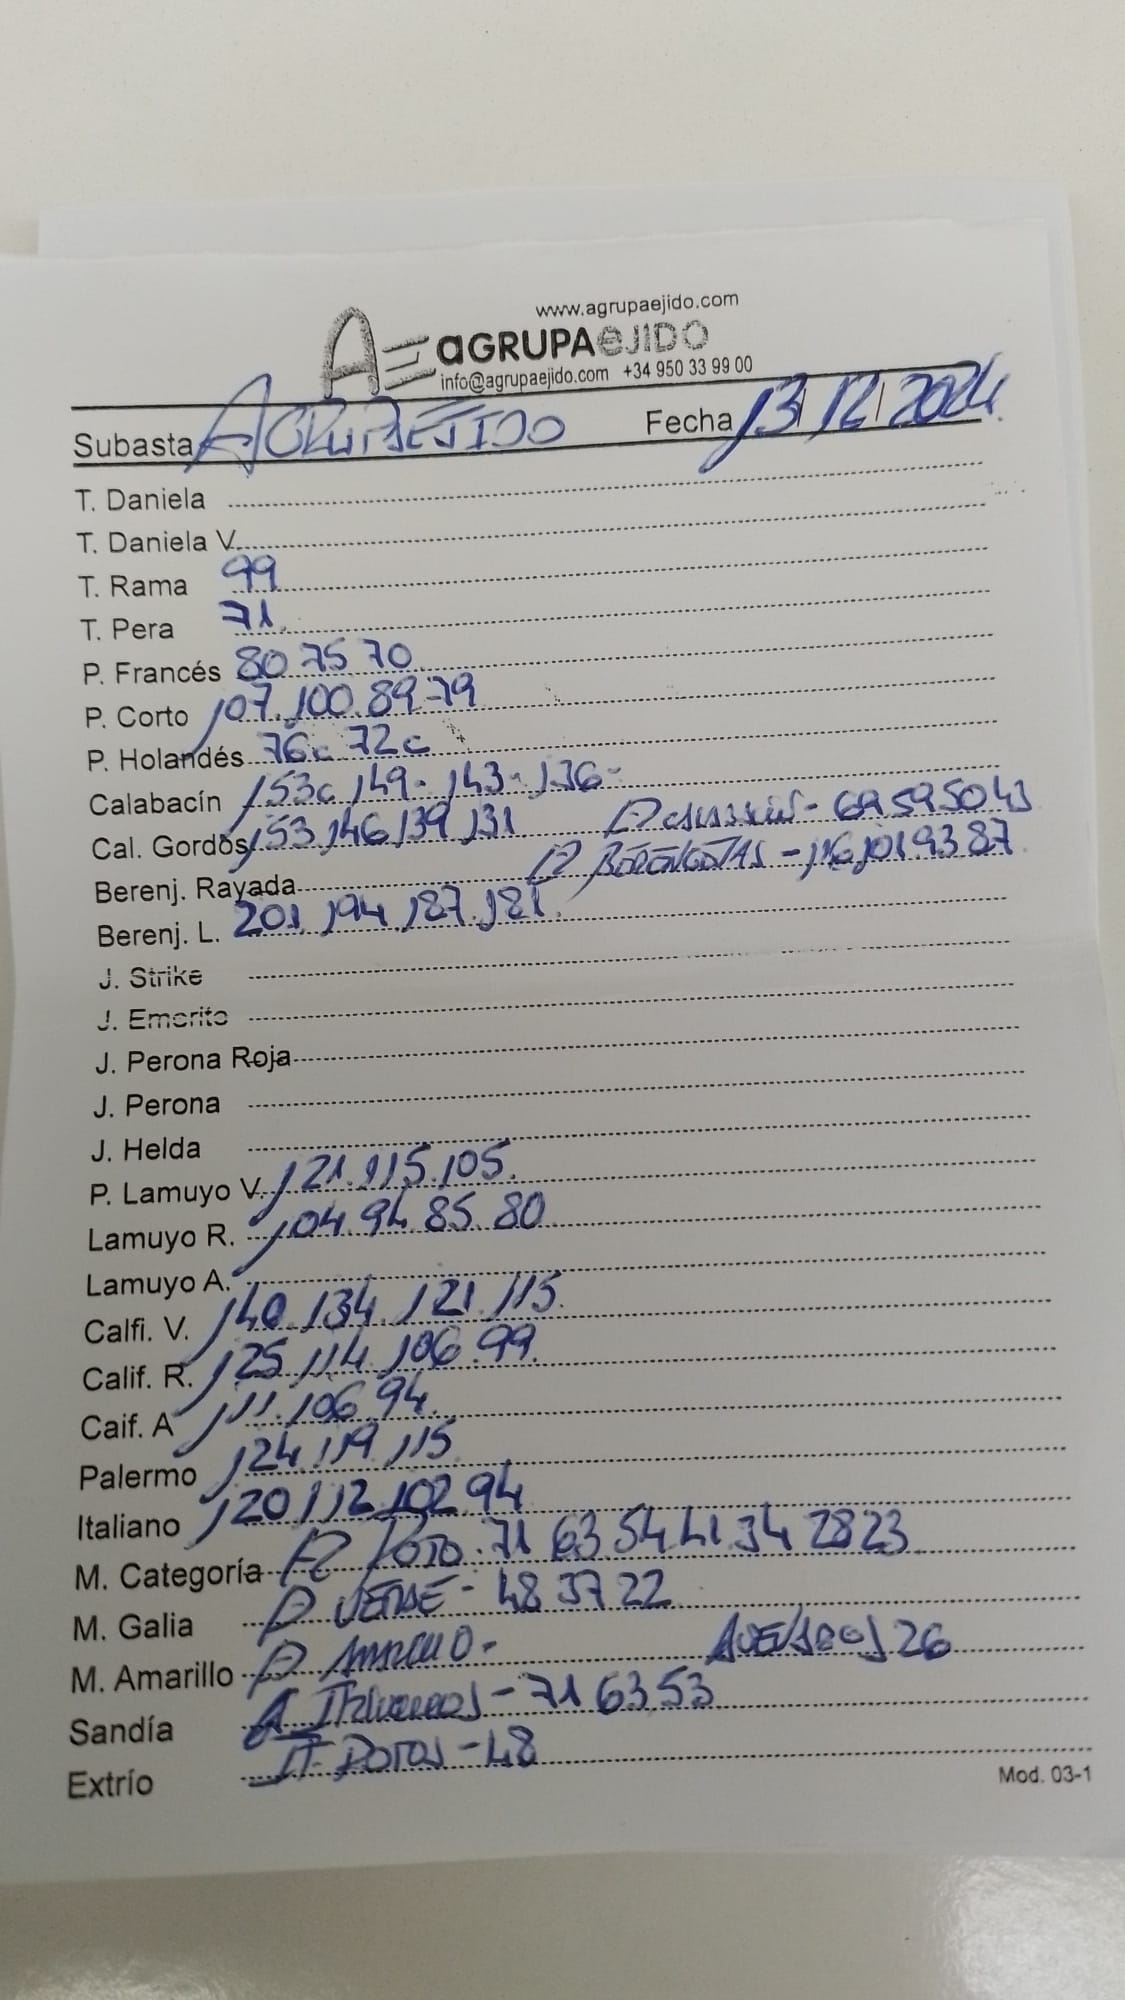 www.agrupaejido.com
A= aGRUPAeJIDO
info@agrupaejido.com +34 950 33 99 00
Subasta AGRUPAEJIDO Fecha 13/12/2024
T. Daniela
T. Daniela V.
T. Rama 99
T. Pera 71
P. Francés 80 75 70
P. Corto 107. 100. 89 79
P. Holandés 76c 72c
Calabacín 153c 149- 143- 136-
Cal. Gordos 153 146 139 131 - 69 59 50 43
Berenj. Rayada BERENGENAS - 116 101 93 87
Berenj. L. 201 194 187 181
J. Strike
J. Emerito
J. Perona Roja
J. Perona
J. Helda
P. Lamuyo V. 121. 115. 105.
Lamuyo R. 104. 94 85 80
Lamuyo A.
Calfi. V. 140 134 121 115
Calif. R. 125 114 106 99
Caif. A 111. 106 94
Palermo 124 119 115
Italiano 120 112 102 94
M. Categoría ROJO. 71 63 54 41 34 28 23
M. Galia VERDE - 48 37 22
M. Amarillo AMARILLO - 26
Sandía ITALIANOS - 71 63 53
Extrío IT. ROJOS - 48
Mod. 03-1